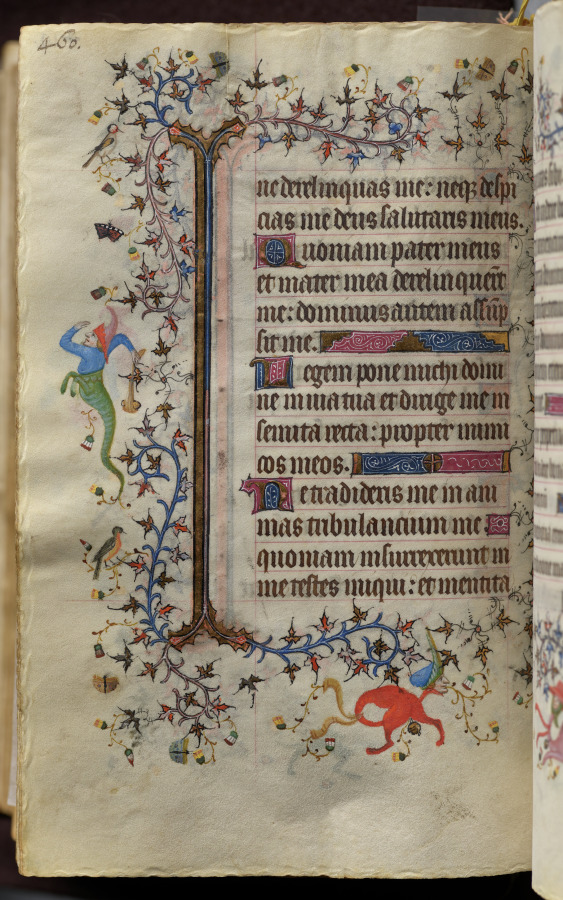 460.
ne derelinquas me: neq₃ despi
cias me deus salutaris meus.
Quoniam pater meus
et mater mea derelinquert̄
me: dominus autem assūp
sit me.
Legem pone michi domi
ne in via tua et dirige me in
semita recta: propter inimi
cos meos.
Ne tradideris me in ani
mas tribulancium me:
quoniam insurrexerunt in
me testes iniqui: et mentita